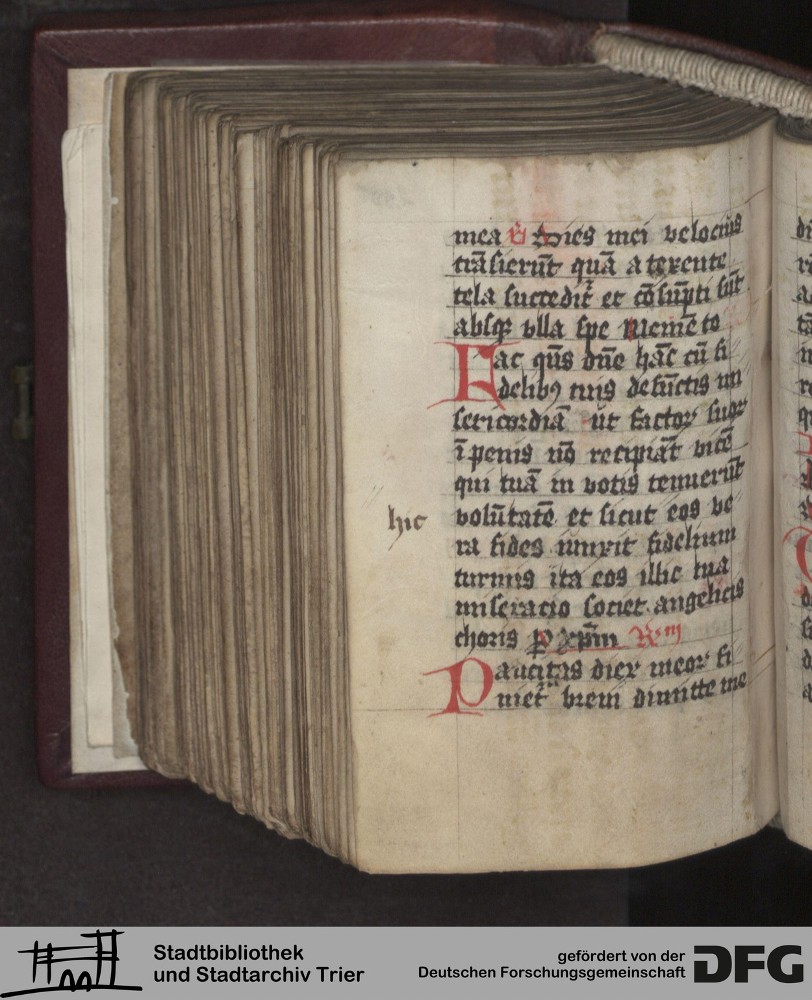 mea v̄ Dies mei velociꝰ
trāsierūt quā a texente
tela succedit̄ et cōsūpti sūt
absqꝫ vlla spe Memēto
Fac qūs dn̄e hāc cū fi
delibꝫ tuis defūctis mi
sericordiā ut factoꝝ suoꝝ
ī penis nō recipiāt vicē
qui tuā in votis tenuerūt
volūtatē et sicut eos ve
hic
ra fides iunxit fidelium
turmis ita eos illic tua
miseracio societ angelicis
choris ꝑ xp̄m
Paucitas dieꝝ meoꝝ fi
niet̄ brevi dimitte me
Stadtbibliothek
und Stadtarchiv Trier
gefördert von der
Deutschen Forschungsgemeinschaft
DFG